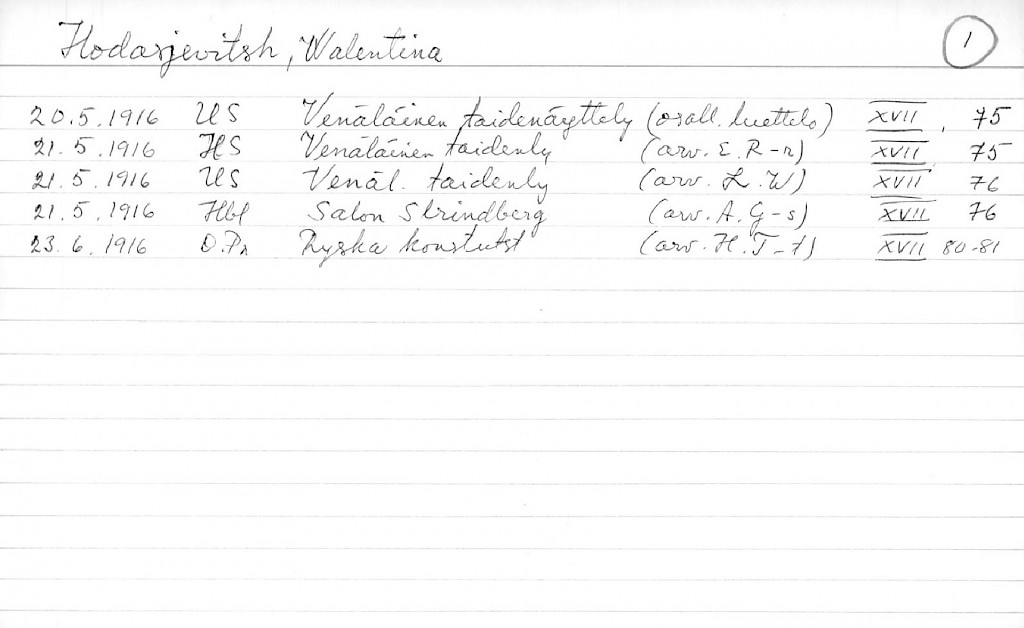 Hodasjevitsh, Walentina
1
20.5.1916 US Venäläinen taidenäyttely (osall. luettelo) XVII, 75
21.5.1916 HS Venäläinen taidenly (arv. E. R-n) XVII, 75
21.5.1916 US Venäl. taidenly (arv. L. W) XVII 76
21.5.1916 Hbl Salon Strindberg (arv. A. G-s) XVII 76
23.6.1916 D.Pr Ryska konstutst (arv. H. T-t) XVII 80-81